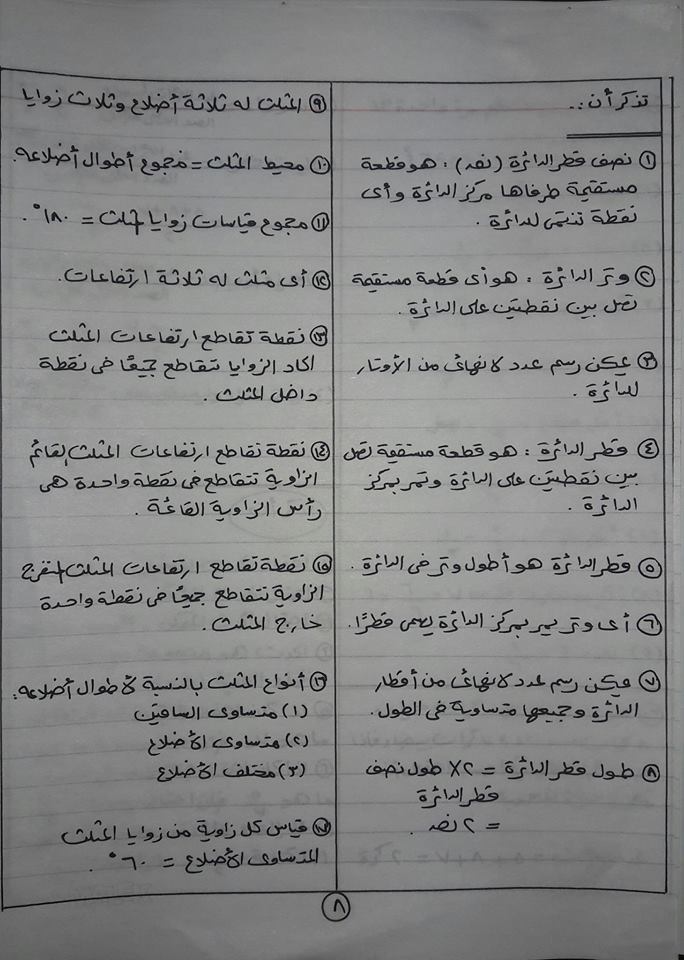 تذكر أن :.
① نصف قطر الدائرة (نصـ) : هو قطعة
مستقيمة طرفاها مركز الدائرة وأى
نقطة تنتمى للدائرة .
② وتر الدائرة : هو أى قطعة مستقيمة
تصل بين نقطتين على الدائرة .
③ يمكن رسم عدد لا نهائى من الأوتار
للدائرة .
④ قطر الدائرة : هو قطعة مستقيمة تصل
بين نقطتين على الدائرة وتمر بمركز
الدائرة .
⑤ قطر الدائرة هو أطول وتر فى الدائرة .
⑥ أى وتر يمر بمركز الدائرة يسمى قطرًا .
⑦ يمكن رسم عدد لا نهائى من أقطار
الدائرة وجميعها متساوية فى الطول .
⑧ طول قطر الدائرة = ٢ × طول نصف
قطر الدائرة
= ٢ نصـ .
⑨ المثلث له ثلاثة أضلاع وثلاث زوايا
⑩ محيط المثلث = مجموع أطوال أضلاعه .
⑪ مجموع قياسات زوايا المثلث = ١٨٠° .
⑫ أى مثلث له ثلاثة ارتفاعات .
⑬ نقطة تقاطع ارتفاعات المثلث
الحاد الزوايا تتقاطع جميعًا فى نقطة
داخل المثلث .
⑭ نقطة تقاطع ارتفاعات المثلث القائم
الزاوية تتقاطع فى نقطة واحدة هى
رأس الزاوية القائمة .
⑮ نقطة تقاطع ارتفاعات المثلث المنفرج
الزاوية تتقاطع جميعًا فى نقطة واحدة
خارج المثلث .
⑯ أنواع المثلث بالنسبة لأطوال أضلاعه :
(١) متساوى الساقين
(٢) متساوى الأضلاع
(٣) مختلف الأضلاع
⑰ قياس كل زاوية من زوايا المثلث
المتساوى الأضلاع = ٦٠° .
٨